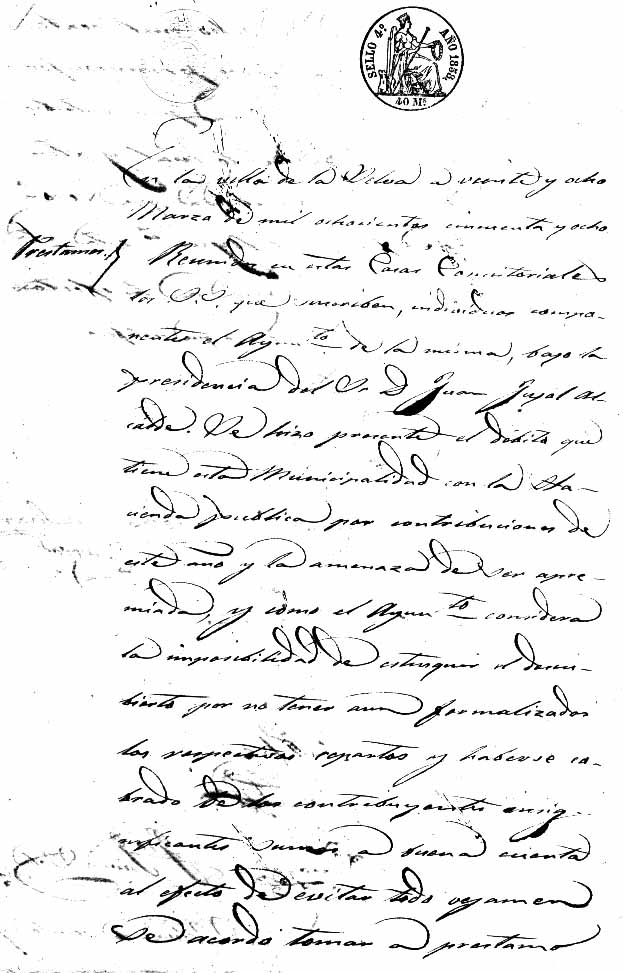 SELLO 4º AÑO 1858.
40 Ms.
En la villa de la Selva a veinte y ocho
Marzo de mil ochocientos cincuenta y ocho
Prestamos.
Reunidos en estas Casas Consistoriales
los S.S. que suscriben, individuos compo-
nentes el Ayunto de la misma, bajo la
presidencia del Sr D Juan Pujol Al-
calde. Se hizo presente el débito que
tiene esta Municipalidad con la Ha-
cienda publica por contribuciones de
este año y la amenaza de ser apre-
miada, y como el Ayunto considera
la imposibilidad de estinguir el descu-
bierto por no tener aun formalizados
los respectivos repartos y haberse co-
brado de los contribuyentes insig-
nificantes sumas a buena cuenta
al efecto de evitar todo vejamen
Se acordó tomar a prestamo